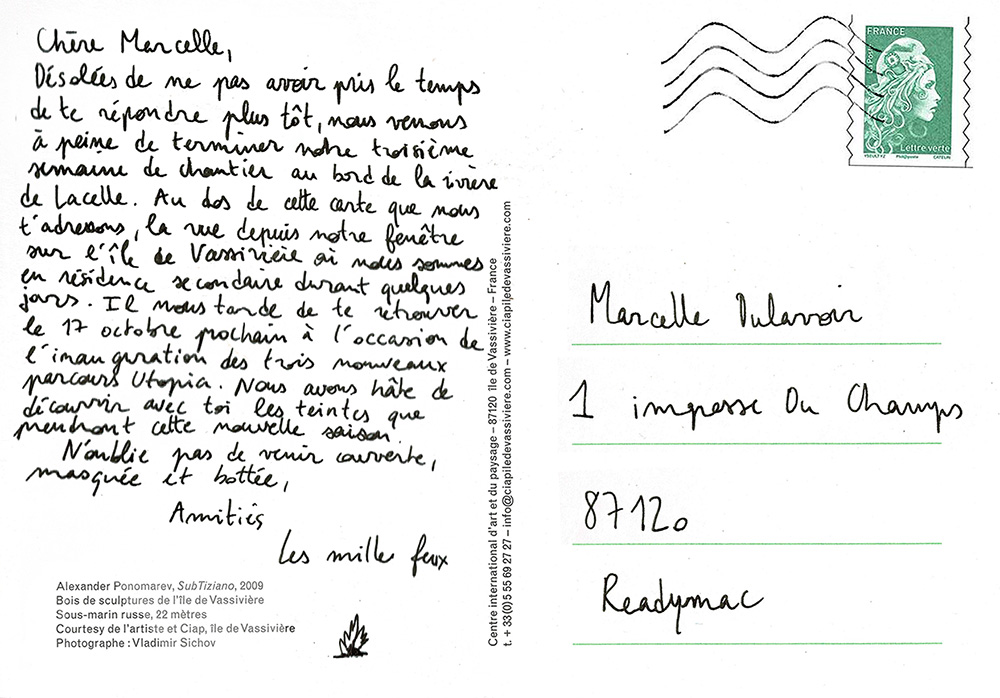 Chère Marcelle,
Désolées de ne pas avoir pris le temps
de te répondre plus tôt, nous venons
à peine de terminer notre troisième
semaine de chantier au bord de la ivière
de Lacelle. Au dos de cette carte que nous
t'adressons, la vue depuis notre fenêtre
sur l'île de Vassivière où nous sommes
en résidence secondaire durant quelques
jours. Il nous tarde de te retrouver
le 17 octobre prochain à l'occasion de
l'inauguration des trois nouveaux
parcours Utopia. Nous avons hâte de
découvrir avec toi les teintes que
prendront cette nouvelle saison.
N'oublie pas de venir couverte,
masquée et bottée,
Amitiés
Les mille feux
Alexander Ponomarev, SubTiziano, 2009
Bois de sculptures de l'île de Vassivière
Sous-marin russe, 22 mètres
Courtesy de l'artiste et Ciap, île de Vassivière
Photographe : Vladimir Sichov
Centre international d'art et du paysage – 87120 île de Vassivière – France
t. + 33(0)5 55 69 27 27 – info@ciapiledevassiviere.com – www.ciapiledevassiviere.com
FRANCE
La Poste
Lettre verte
YSEULT YZ Phil@poste CATELIN
Marcelle Dulavoir
1 impasse Du Champs
87120
Readymac